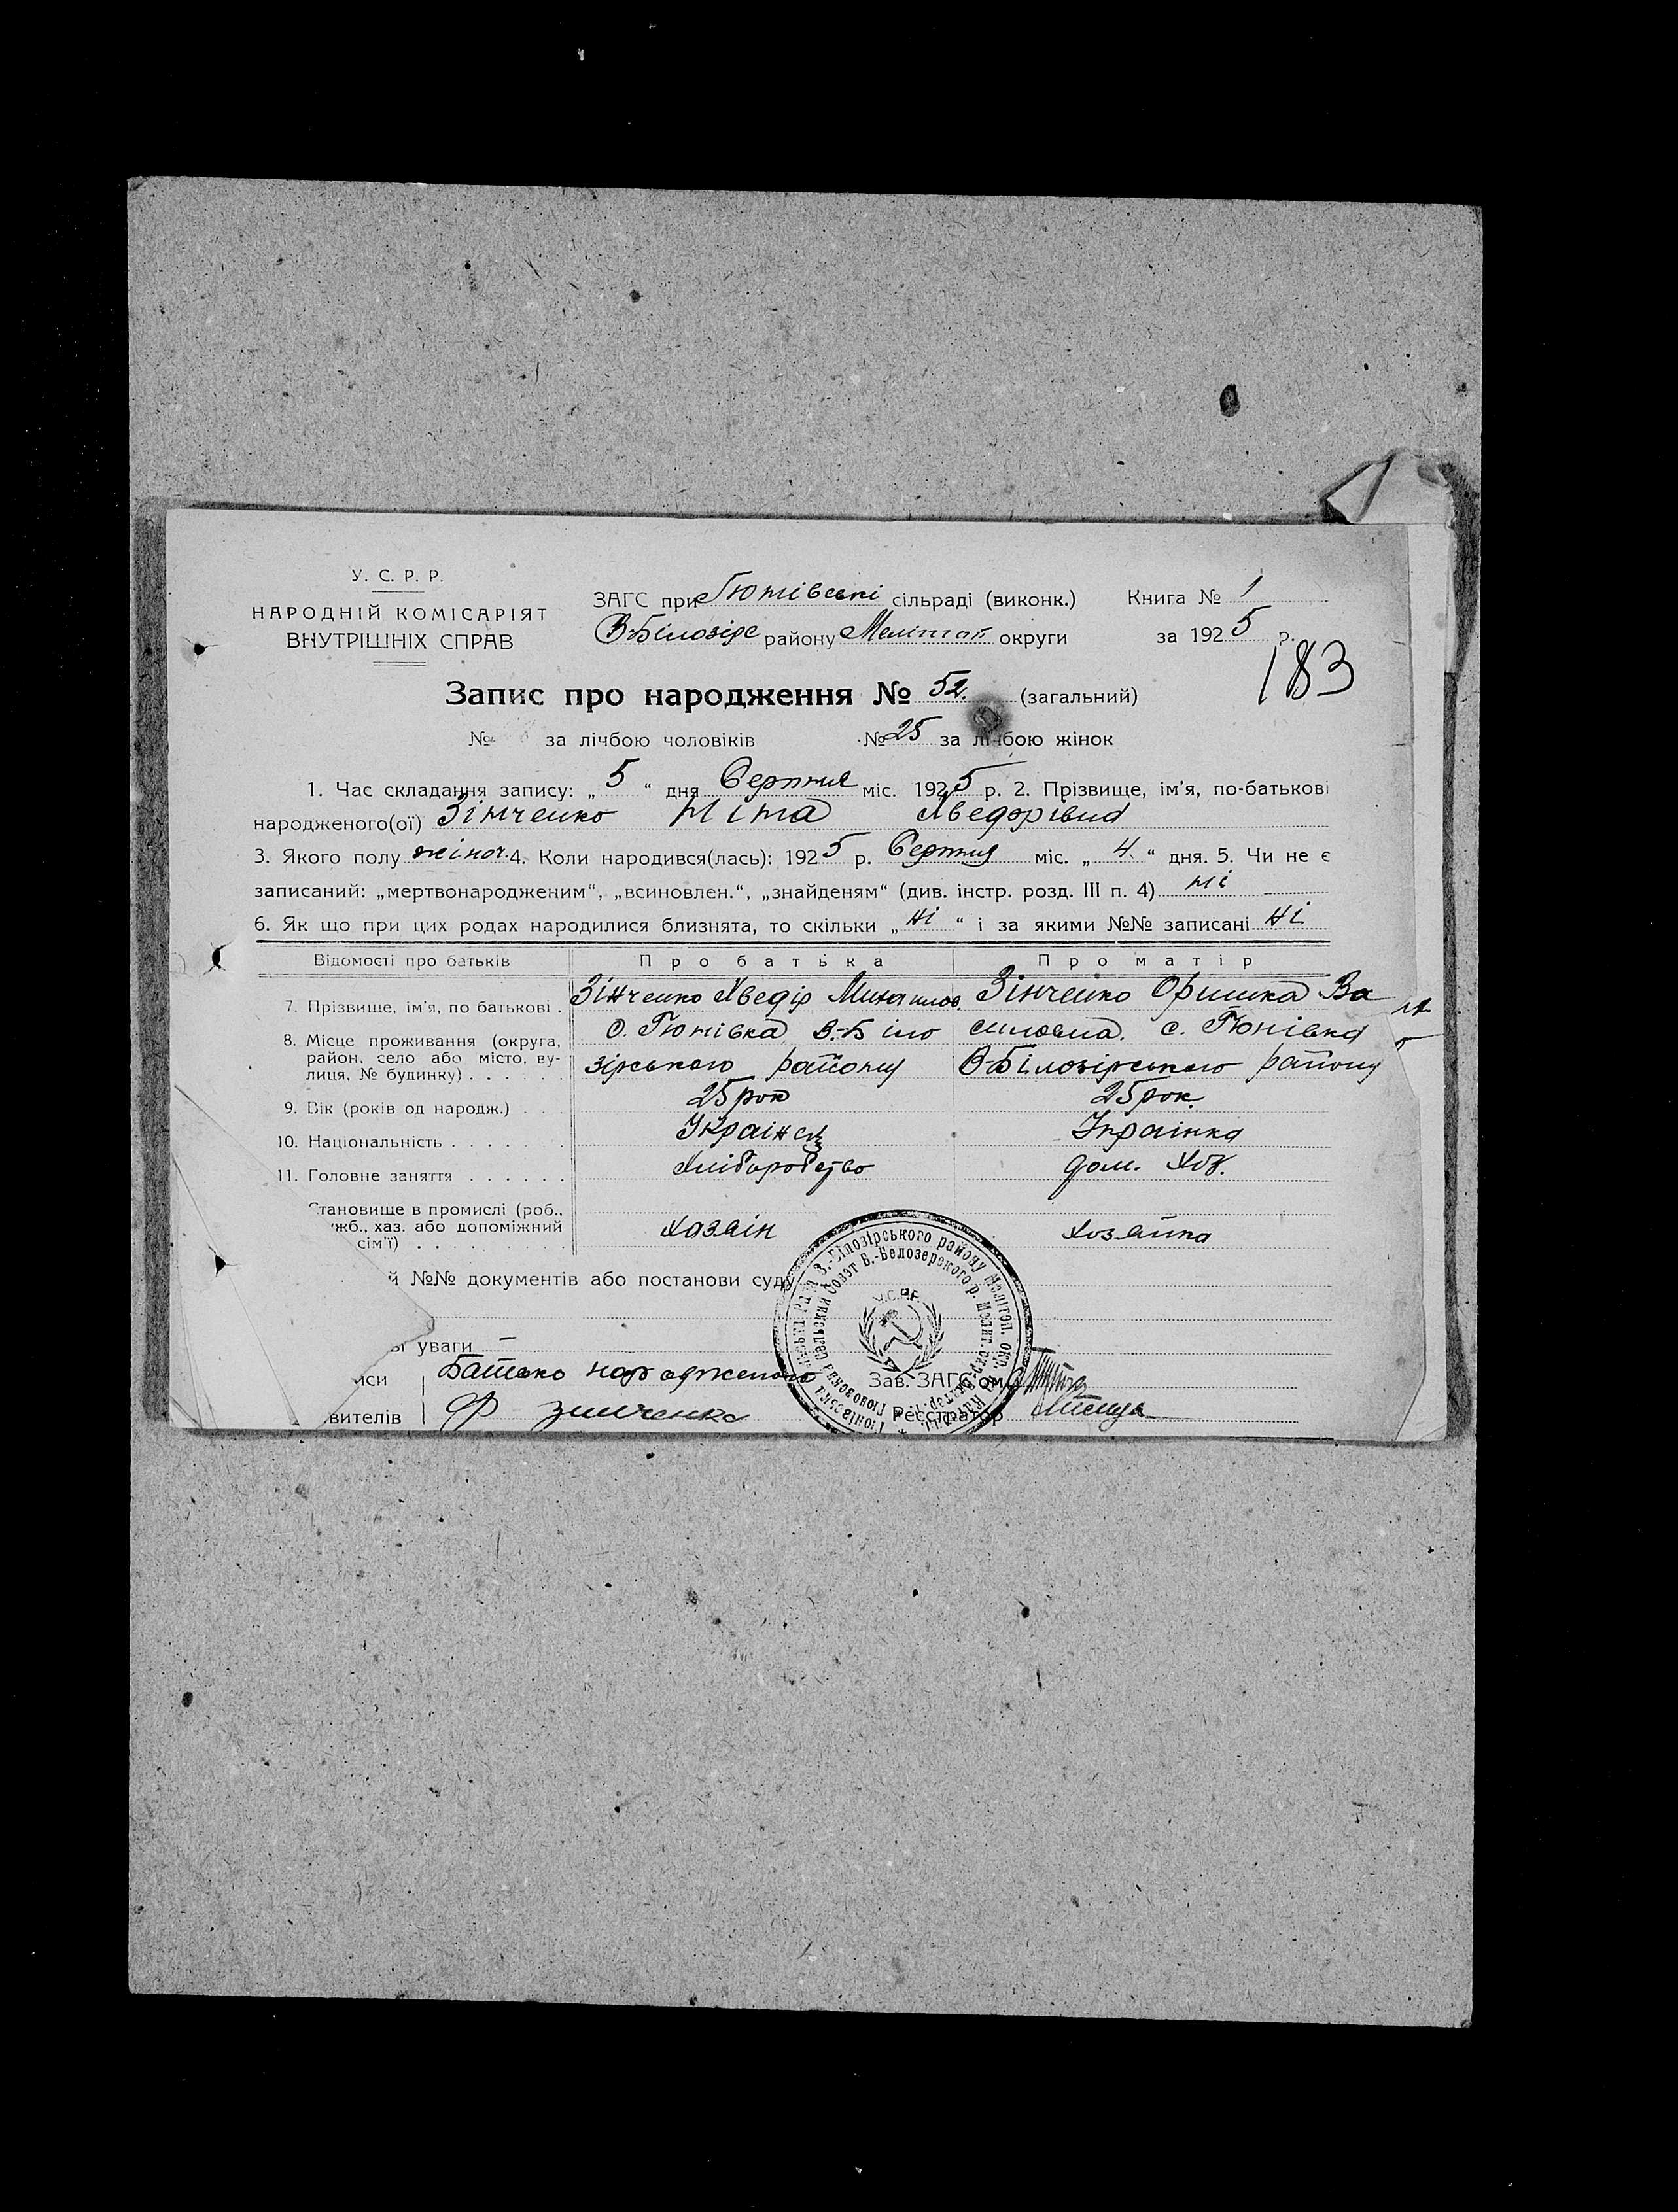 У. С. Р. Р.
НАРОДНІЙ КОМІСАРІЯТ
ВНУТРІШНІХ СПРАВ
ЗАГС при Гюнівскі сільраді (виконк.) Книга № 1
В-Білозіре району Мелітоп округи за 1925 р.
183
Запис про народження № 52. (загальний)
№ за лічбою чоловіків № 25 за лічбою жінок
1. Час складання запису: „ 5 “ дня Серпня міс. 1925 р. 2. Прізвище, ім'я, по-батькові
народженого(ої) Зінченко Ніна Хведорівна
3. Якого полу жіноч. 4. Коли народився(лась): 1925 р. Серпня міс. „ 4. “ дня. 5. Чи не є
записаний: „мертвонародженим“, „всиновлен.“, „знайденям“ (див. інстр. розд. III п. 4) ні
6. Як що при цих родах народилися близнята, то скільки „ ні “ і за якими №№ записані ні
Відомості про батьків Про батька Про матір
7. Прізвище, ім'я, по батькові . Зінченко Хведір Михайлов. Зінченко Оришка Ва
8. Місце проживання (округа, с. Гюнівка В-Біло силовна. с. Гюнівка
район, село або місто, ву-
лиця, № будинку) . . . . . . зірського району В-Білозірського району
9. Вік (років од народж.) . . . 25 рок 25 рок.
10. Національність . . . . . . . Українец Українка
11. Головне заняття . . . . . . Хліборобство дом. Хоз.
Становище в промислі (роб.,
жб., хаз. або допоміжний
сім'ї) . . . . . . . . . . Хазаін Хозайка
й №№ документів або постанови суду
уваги
Батько народженого Зав. ЗАГС'ом
вителів Ф Зинченко Реєстратор
В.-Білозірського району Мелітоп. окр.
Сельский Совэт Б.-Белозерского р. Мелит. окр.
У.С.Р.Р.